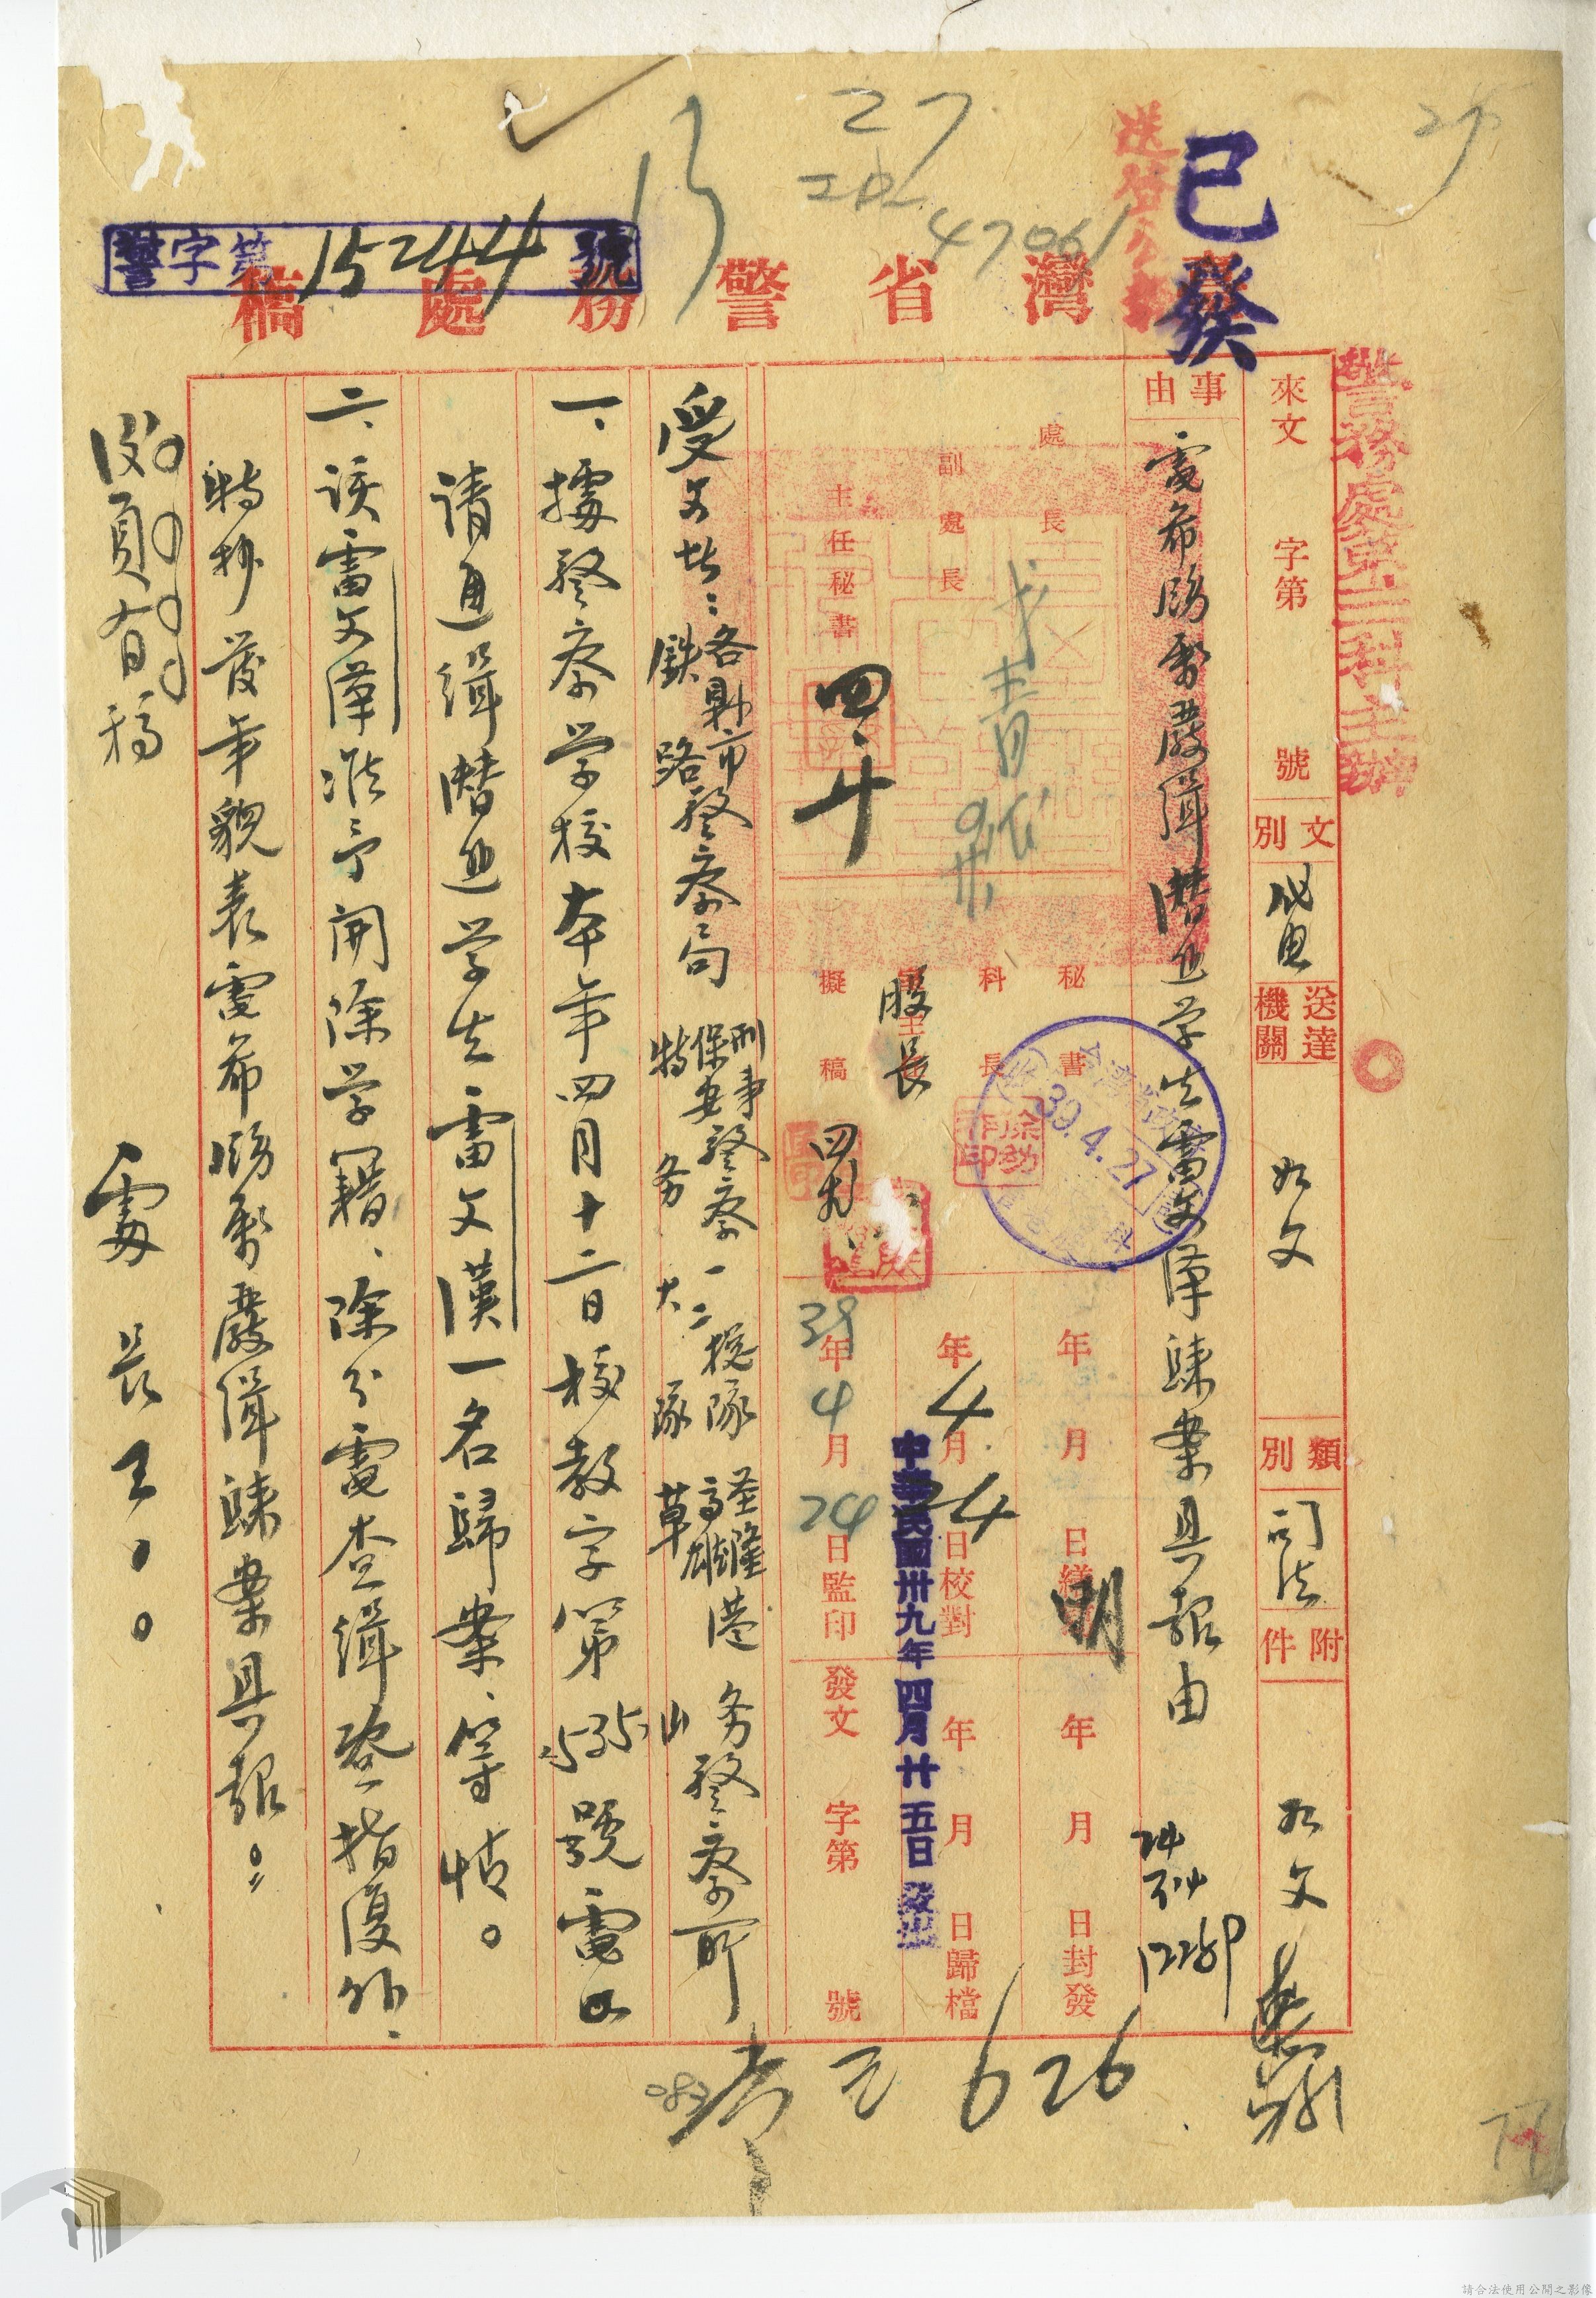 已發
27
47061
警字第15244號
臺灣省警務處稿
警務處第二科主辦
來文 字第 號
文別 代電
送達機關 如文
類別 司法
附件 如文
事由
電希協緝嚴緝潛逃學生雷文漢歸案具報由
處長
副處長
主任秘書
秘書
科長
股長
擬稿
39.4.27
年 月 日繕
年4月24日校對
39年4月24日監印
年 月 日封發
年 月 日歸檔
發文 字第 號
中華民國卅九年四月廿五日發出
受文者：各縣市警察局 鐵路警察局 刑事警察 保安警察一二總隊 特務大隊 基隆高雄港務警察所 草山
一、據警察学校本年四月十二日校教字第535號電以
請通緝潛逃学生雷文漢一名歸案、等情。
二、該雷文漢准予開除学籍、除分電查緝暨指復外、
特抄發年貌表電希協緝嚴緝歸案具報。
處長王○○
626